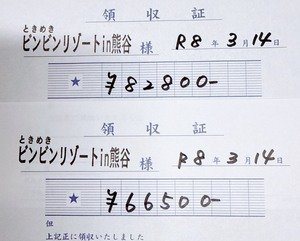 領収証
ときめき
ピンピンリゾートin熊谷 様 R8年3月14日
★ ¥82800-
領収証
ときめき
ピンピンリゾートin熊谷 様 R8年3月14日
★ ¥66500-
但
上記正に領収いたしました